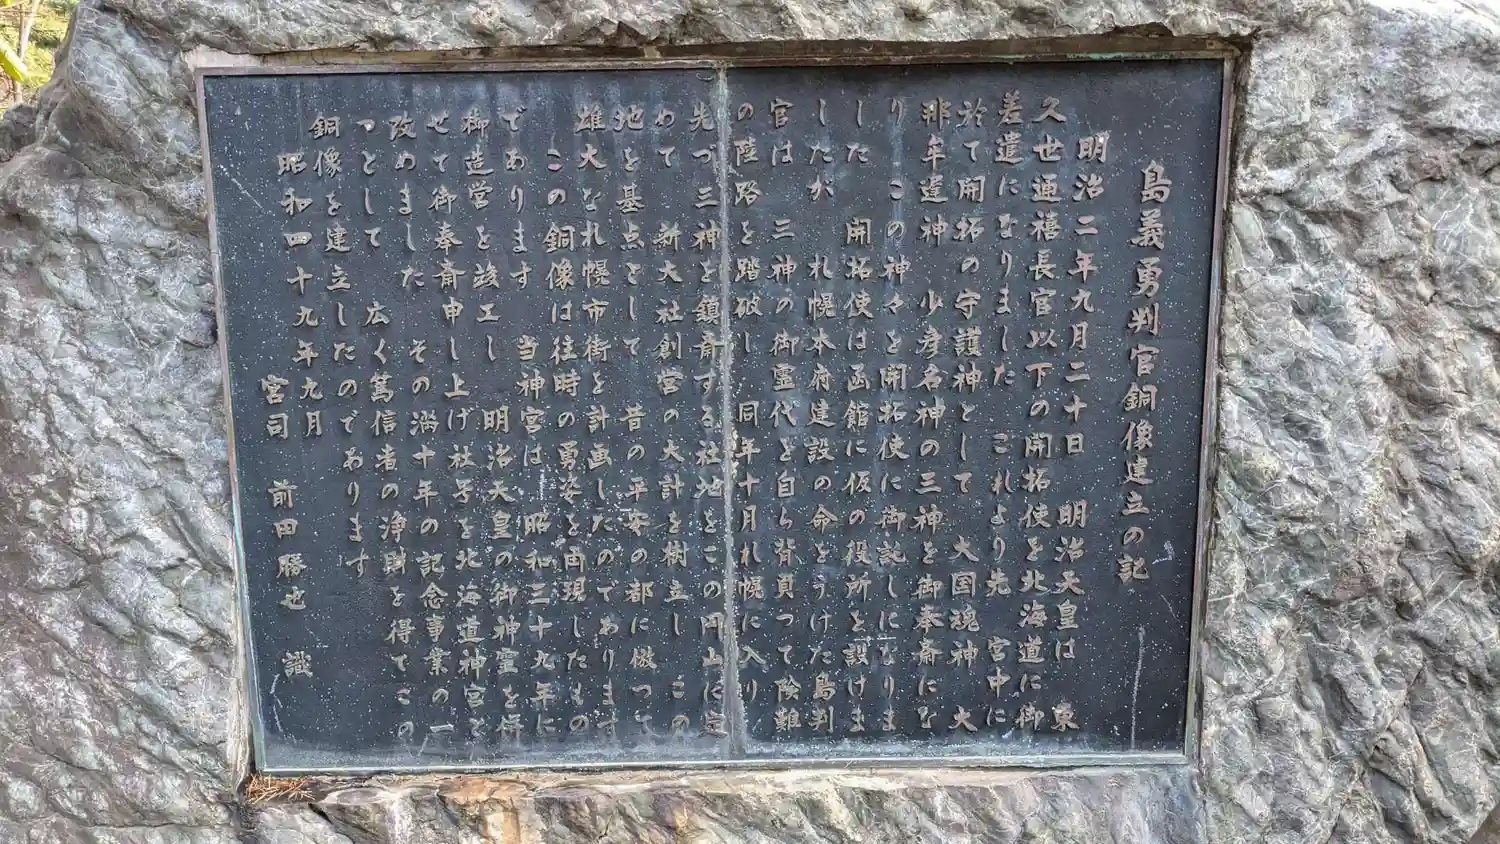 島義勇判官銅像建立の記
明治二年九月二十日 明治天皇は 東
久世通禧長官以下の開拓使を北海道に御
差遣になりました これより先 宮中に
於て開拓の守護神として 大国魂神 大
那牟遅神 少彦名神の三神を御奉斎にな
り この神々を開拓使に御託しになりま
した 開拓使は函館に仮の役所を設けま
したが 札幌本府建設の命をうけた島判
官は 三神の御霊代を自ら背負って険難
の陸路を踏破し 同年十月札幌に入り
先づ三神を鎮斎する社地をこの円山に定
めて 新大社創営の大計を樹立し この
地を基点として 昔の平安の都に倣って
雄大な札幌市街を計画したのであります
この銅像は往時の勇姿を再現したもの
であります 当神宮は 昭和三十九年に
御造営を竣工し 明治天皇の御神霊を併
せて御奉斎申し上げ社号を北海道神宮と
改めました その満十年の記念事業の一
つとして 広く篤信者の浄財を得てこの
銅像を建立したのであります
昭和四十九年九月
宮司 前田勝也 識